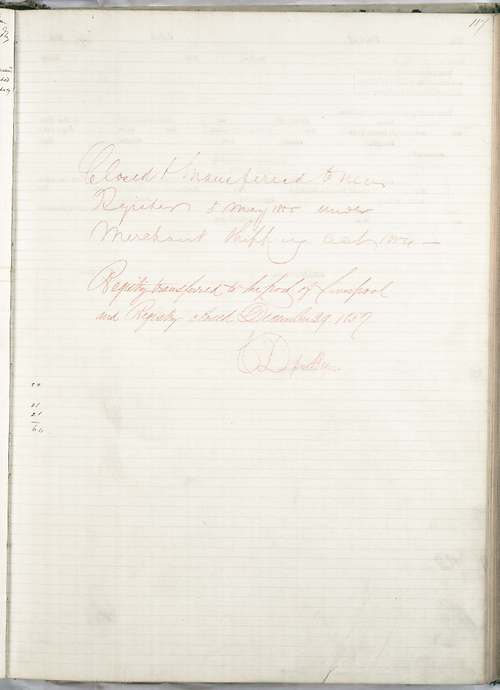 117
Closed & transferred to new
Register 8 May 1855 under
Merchant Shipping Act 1854 —
Registry transferred to the port of Liverpool
and Registry closed December 29 1857